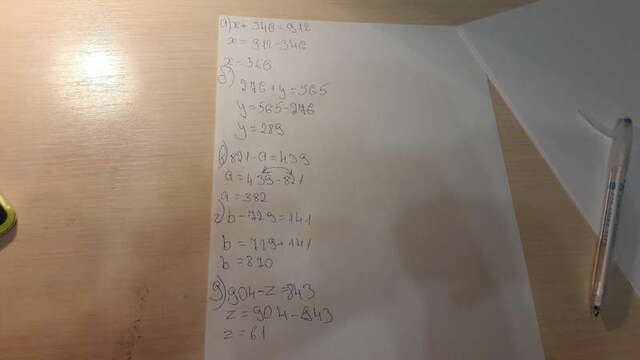 а) x + 346 = 912
x = 912 - 346
x = 566
б) 276 + y = 565
y = 565 - 276
y = 289
в) 821 - a = 439
a = 439 - 821
a = 382
г) b - 729 = 141
b = 729 + 141
b = 870
д) 904 - z = 843
z = 904 - 843
z = 61